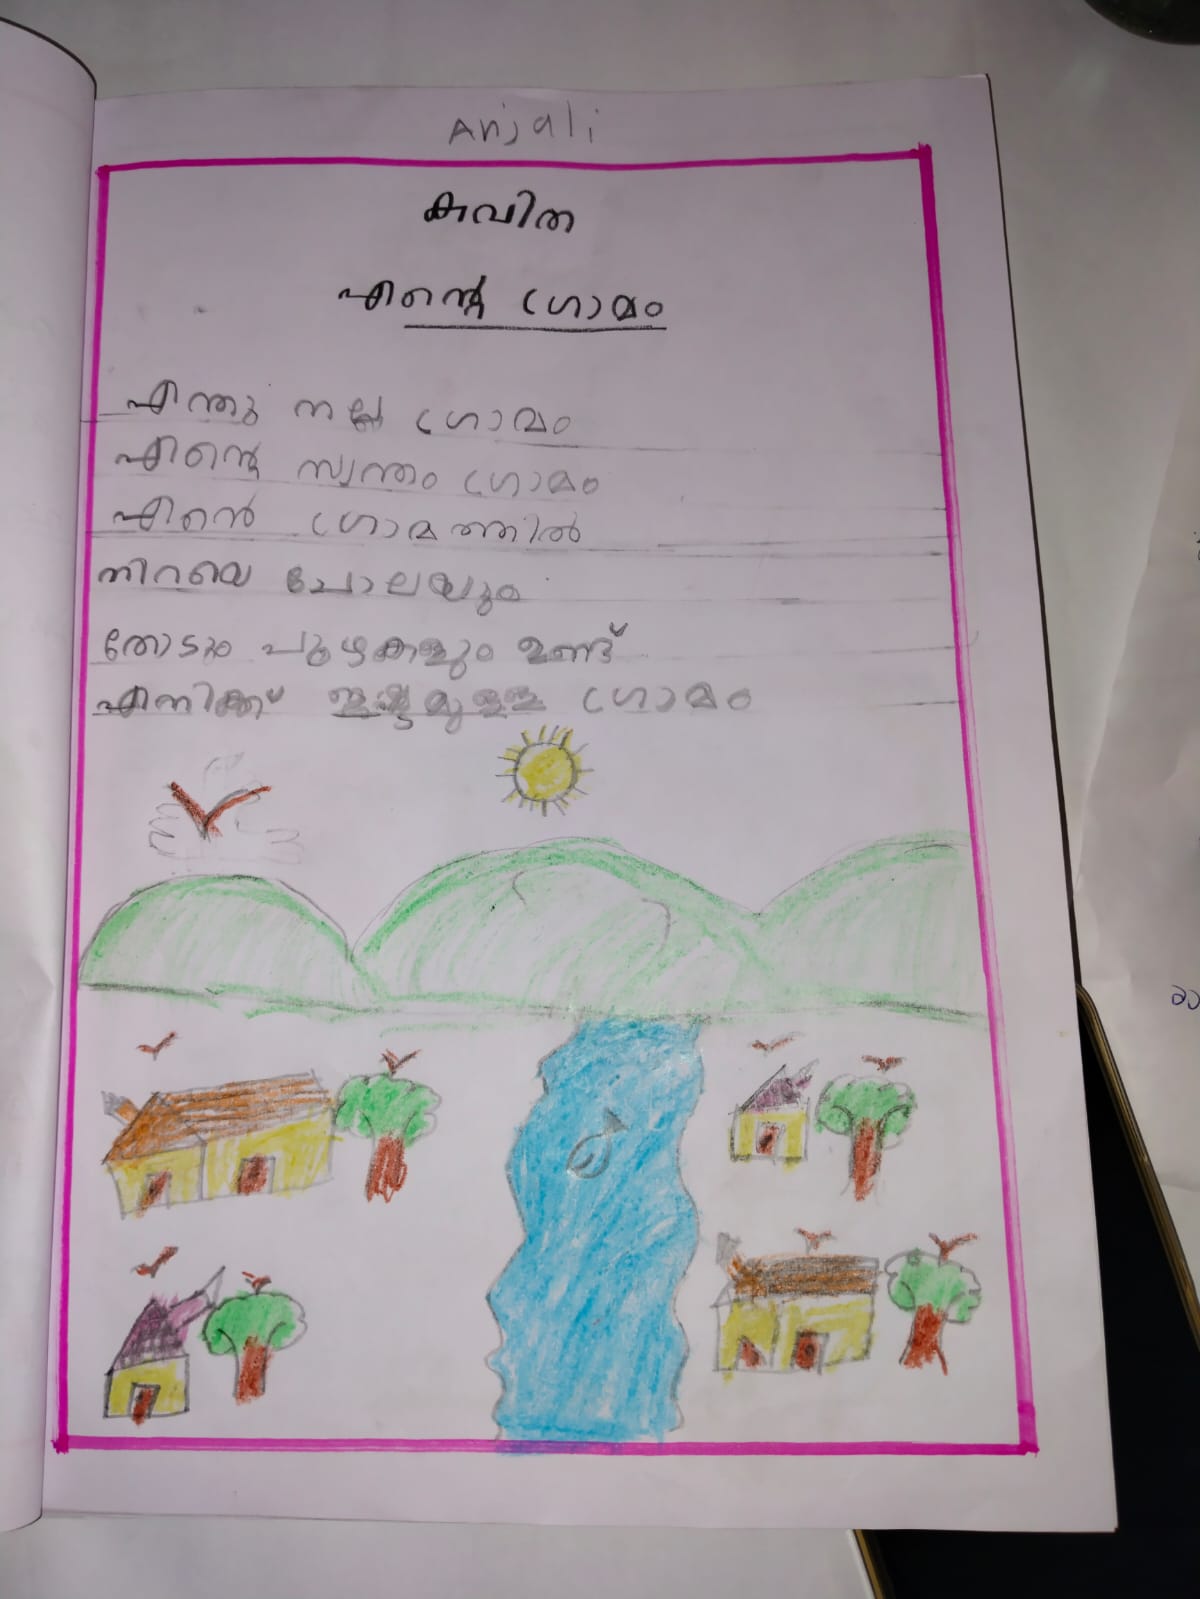 Anjali
കവിത
എന്റെ ഗ്രാമം
എന്തു നല്ല ഗ്രാമം
എന്റെ സ്വന്തം ഗ്രാമം
എൻെ ഗ്രാമത്തിൽ
നിറവെ ചോലയും
തോടും പുഴകളും ഉണ്ട്
എനിക്ക് ഇഷ്ടമുള്ള ഗ്രാമം